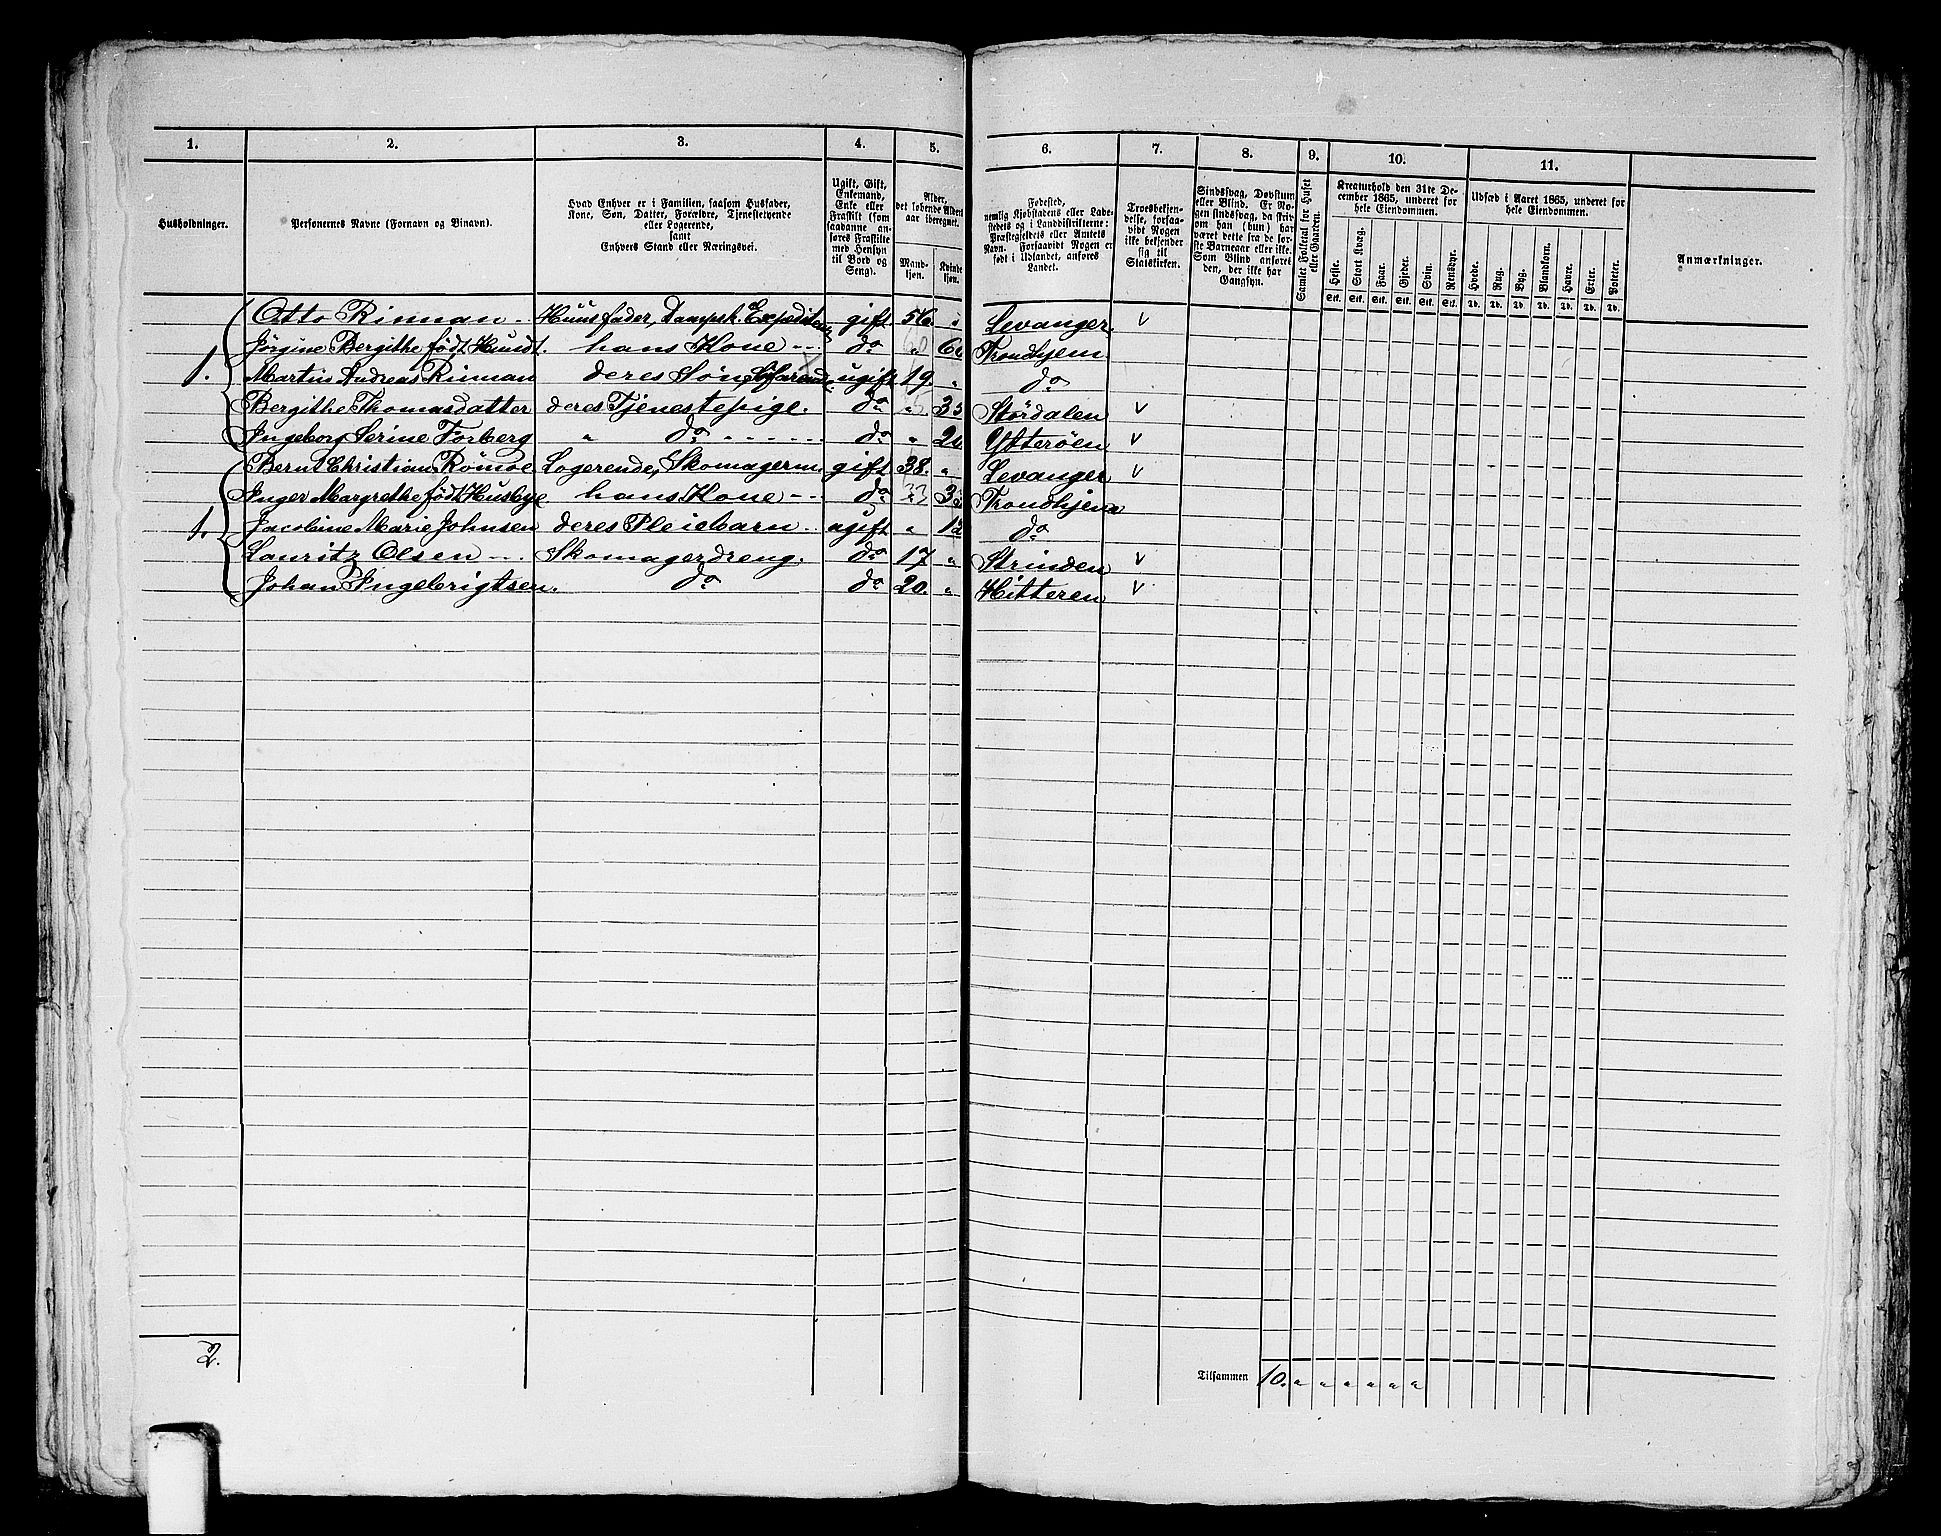 1. 2. 3. 4. 5. 6. 7. 8. 9. 10. 11.
Husholdninger.
Personernes Navne (Fornavn og Binavn).
Hvad Enhver er i Familien, saasom Husfader,
Kone, Søn, Datter, Forældre, Tjenestetyende
eller Logerende,
samt
Enhvers Stand eller Næringsvei.
Ugift, Gift,
Enkemand,
Enke eller
Fraskilt (som
saadanne an-
føres Fraskilte
med Hensyn
til Bord og
Seng).
Alder,
det løbende Alders-
aar iberegnet.
Mand-
kjøn.
Kvinde-
kjøn.
Fødested,
nemlig Kjøbstadens eller Lade-
stedets og i Landdistrikterne:
Præstegjeldets eller Amtets
Navn. Forsaavidt Nogen er
født i Udlandet, anføres
Landet.
Troesbekjen-
delse, forsaa-
vidt Nogen
ikke bekjender
sig til
Statskirken.
Sindssvag, Døvstum
eller Blind. Er No-
gen sindssvag, da skriv
om han (hun) har
været dette fra de før-
ste Barneaar eller ikke.
Som Blind anføres
den, der ikke har
Gangsyn.
Samlet Folketal for Huset
eller Gaarden.
Kreaturhold den 31te De-
cember 1865, underet for
hele Eiendommen.
Heste. Stort Kvæg. Faar. Gjeder. Svin. Rensdyr.
Stk. Stk. Stk. Stk. Stk. Stk.
Udsæd i Aaret 1865, underet for
hele Eiendommen.
Hvede. Rug. Byg. Blandkorn. Havre. Erter. Poteter.
Td. Td. Td. Td. Td. Td. Td.
Anmærkninger.
Otto Rinman Huusfader, Dampsk. Expediteur gift 56. " Levanger v
Jörgine Bergithe födt Hundt. hans Kone do " 60 Trondhjem
1. Martin Andreas Rinman deres Søn, Søfarende ugift 19. " do
Bergithe Thomasdatter deres Tjenestepige. do " 35 Stördalen v
Ingeborg Serine Forberg " do do " Ytterøen v
Bernt Christian Römoe Logerende, Skomagerm. gift 38. " Levanger v
Inger Margrethe födt Husbye hans Kone do " 33 Trondhjem
1. Jacobine Marie Johnsen deres Pleiebarn ugift " 12 do
Lauritz Olsen Skomagerdreng. do 17 " Strinden v
Johan Ingebrigtsen. do do 20. " Hitteren v
2.
Tilsammen 10. " " " " " "